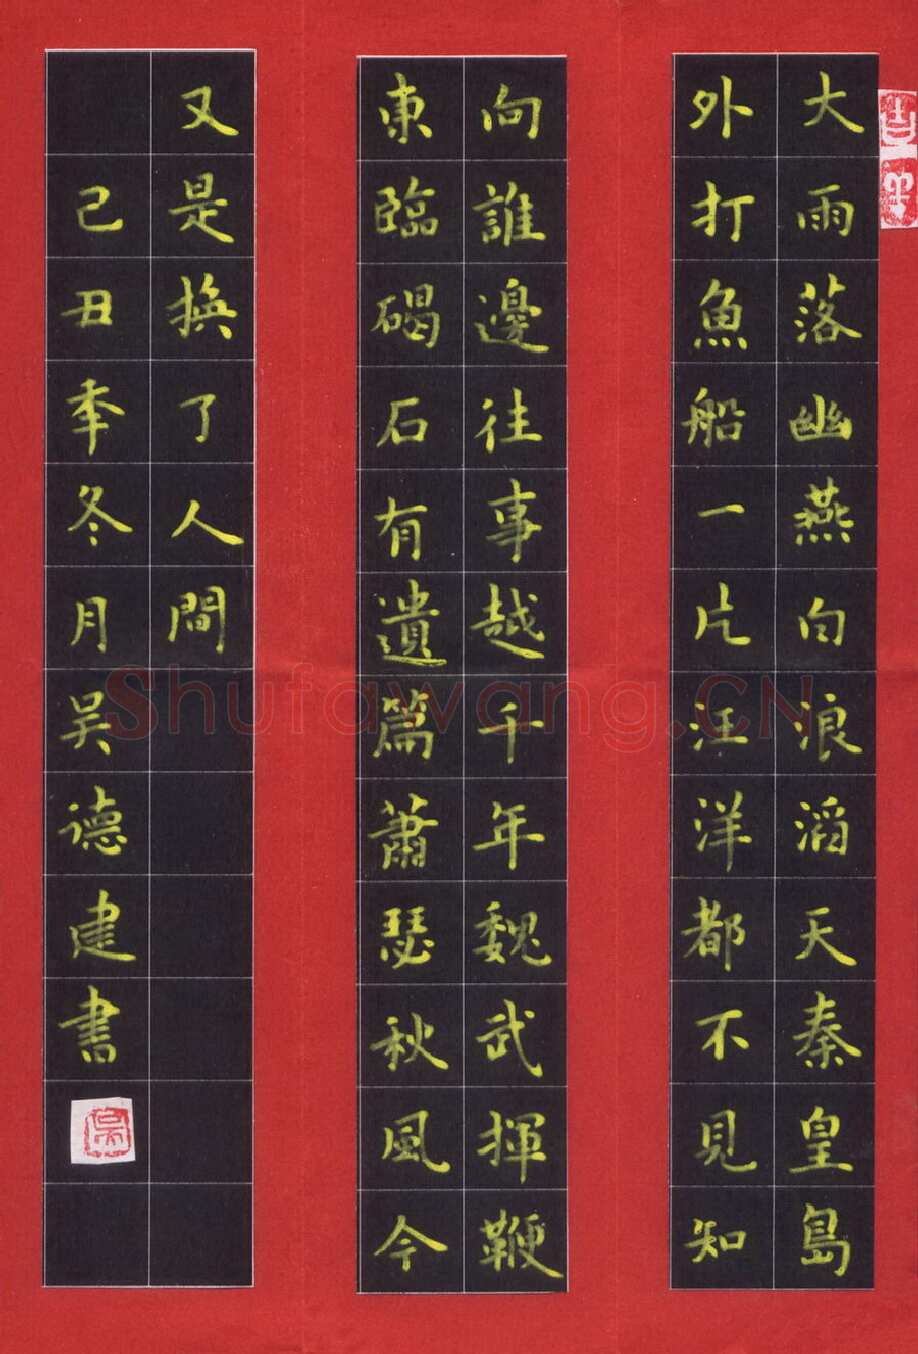 大雨落幽燕白浪滔天秦皇島
外打魚船一片汪洋都不見知
向誰邊往事越千年魏武揮鞭
東臨碣石有遺篇蕭瑟秋風今
又是換了人間
己丑秊冬月吴德建書
Shufawang.CN